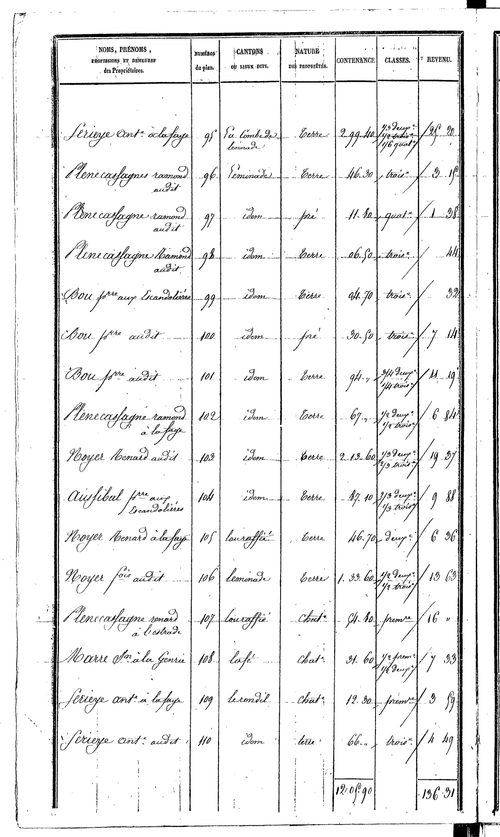 NOMS, PRÉNOMS, PROFESSIONS ET DEMEURES des Propriétaires. NUMÉROS du plan. CANTONS OU LIEUX DITS. NATURE DES PROPRIÉTÉS. CONTENANCE CLASSES. REVENU.
Serieye Ant.e à la faye 95 La Combe de lemnade Terre 2 99.40 1/3 deux.e 1/2 trois.e 1/6 quat.e 25 20
Plenecassagnes ramond audit 96 Lemenade Terre 46.30 trois.e 3 15
Plenecassagne ramond audit 97 idem pré 11.80 quat.e 1 38
Plenecassagne Ramond audit 98 idem Terre 06.50 trois.e 44
Bou p.rre aux Escandolières 99 idem Terre 04.70 trois.e 32
Bou p.rre audit 100 idem pré 30.50 trois.e 7 14
Bou p.rre audit 101 idem Terre 94 " 3/4 deux.e 1/4 trois.e 11 19
Plenecassagne ramond à la faye 102 idem Terre 67 " 1/2 deux.e 1/2 trois.e 6 84
Noyer Renard audit 103 idem Terre 2.13.60 1/3 deux.e 2/3 trois.e 19 37
Aussibal p.rre aux Escandolières 104 idem Terre 87.10 2/3 deux.e 1/3 trois.e 9 88
Noyer Renard à la faye 105 lou raffié Terre 46.70 deux.e 6 36
Noyer fois audit 106 lemenade Terre 1.33.60 1/2 deux.e 1/2 trois.e 13 63
Plenecassagne renard à lestrade 107 lou raffié Chat.e 54.80 prem.re 16 "
Marre J.n à la Genrie 108 la fé Chat.e 31.60 1/2 prem.re 1/2 deux.e 7 33
Serieye ant.e à la faye 109 le rondil Chat.e 12.30 prem.re 3 59
Serieye ant.e audit 110 idem terre 66 " trois.e 4 49
12.05.90 136 31